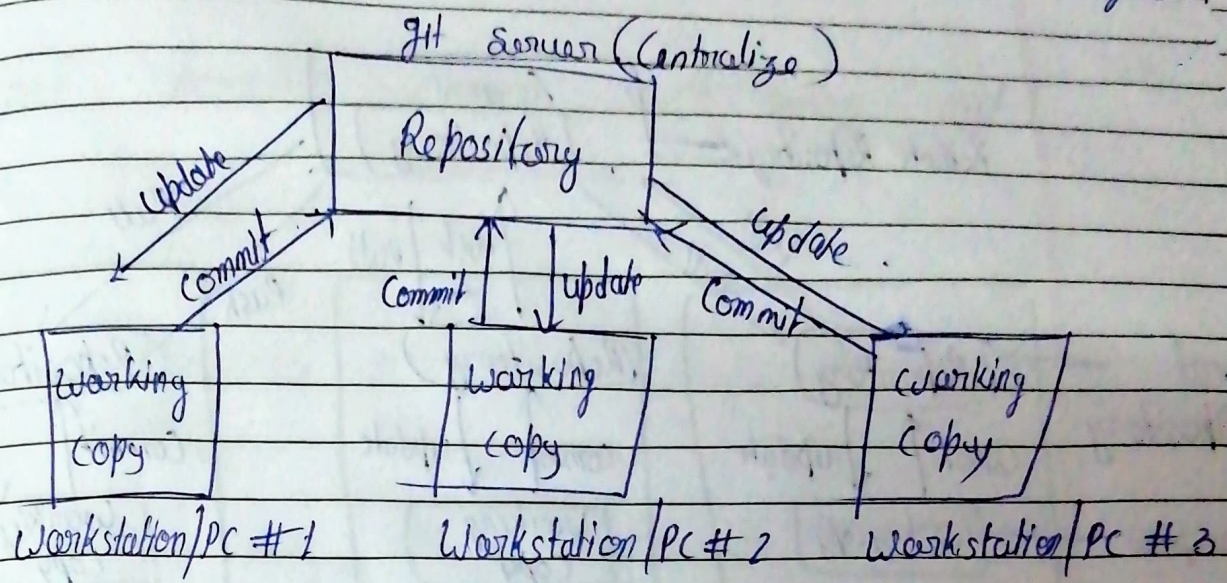 git Server (Centralize)
Repository
update
commit
Commit
update
update
Commit
working
copy
working
copy
working
copy
Workstation/PC # 1
Workstation/PC # 2
Workstation/PC # 3